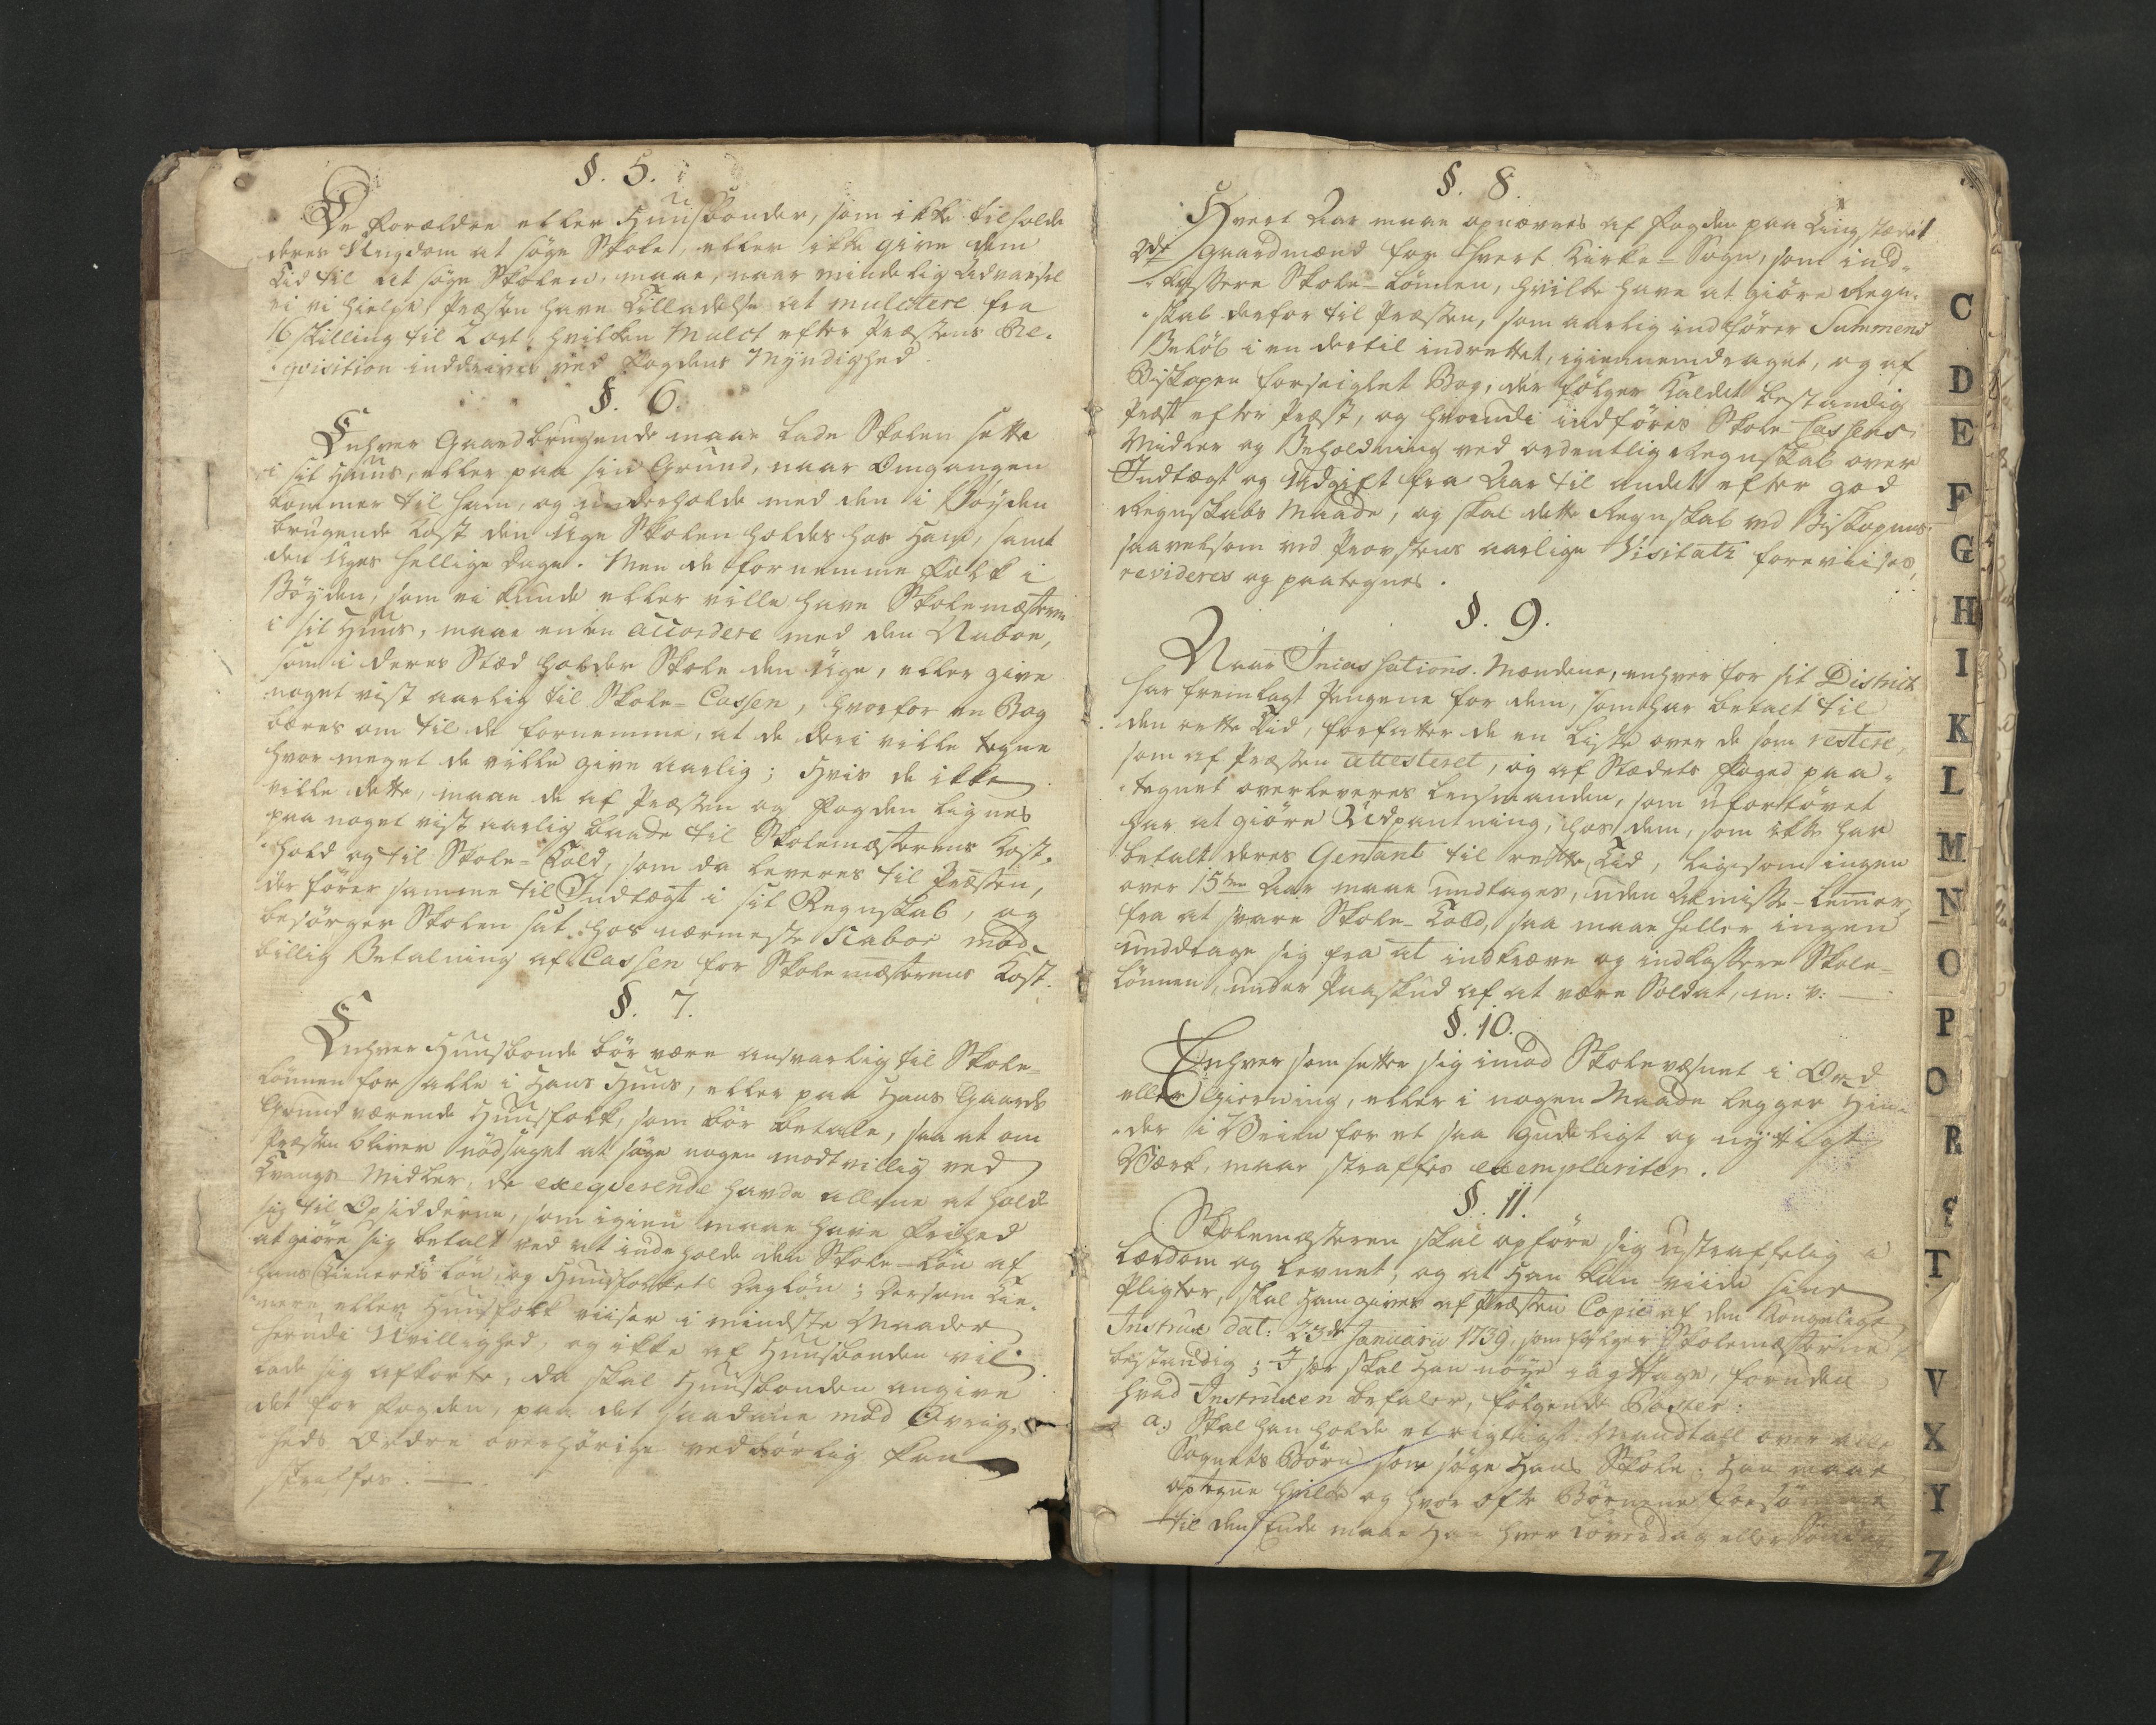 §. 5.
De Forældre eller Huusbonder, som ikke tilholde
deres Ungdom at søge Skole, eller ikke give dem
Tid til at søge Skolen, maae, naar mindelig Advarsel
ei vi hielpe, Præsten have Tilladelse at mulctere fra
16 skilling til 2 ort, hvilken Mulct efter Præstens Re-
qvisition inddrives ved Fogdens Myndighed.
§. 6.
Enhver Gaardbrugende maae lade Skolen sette
i sit Huus, eller paa sin Grund, naar Omgangen
kommer til ham, og underholde med den i Bøyden
brugende Kost den Uge Skolen holdes hos Ham, samt
den Uges hellige Dage. Men de fornemme Folk i
Bøyden, som ei kunde eller ville have Skolemæsteren
i sit Huus, maae enten accordere med den Naboe,
som i deres Stæd holder Skole den Uge, eller give
noget vist aarlig til Skole-Cassen, hvorfor en Bog
bæres om til de fornemme, at de deri ville tegne
hvor meget de ville give aarlig; Hvis de ikke
ville dette, maae de af Præsten og Fogden lignes
paa noget vist aarlig baade til Skolemæsterens Kost-
hold og til Skole-Told, som da leveres til Præsten,
der fører samme til Indtægt i sit Regnskab, og
besørger Skolen sat hos nærmeste Naboe mod
billig Betalning af Cassen for Skolemæsterens Kost.
§. 7.
Enhver Huusbonde bør være ansvarlig til Skole-
Lønnen for alle i Hans Huus, eller paa Hans Gaards
Grund værende Huusfolk, som bør betale, saa at om
Præsten bliver nødsaget at søge nogen modtvillig ved
Tvangs Midler, de exeqverende havde allene at holde
sig til Opsidderne, som igien maae have Frihed
at giøre sig betalt ved at indeholde den Skole-Løn af
hans Tieneres Løn, og Huusfolkets Dagløn; Dersom Tie-
nere eller Huusfolk viiser i mindste Maader
herudi Uvillighed, og ikke af Huusbonden vil
lade sig afkorte, da skal Huusbonden angive
det for Fogden, paa det saadanne mod Øvrig-
heds Ordre overhørige vedbørlig kan
straffes.
§. 8.
Hvert Aar maae opnævnes af Fogden paa Tingstædet
2de Gaardmænd for hvert Kirke-Sogn, som ind-
kassere Skole-Lønnen, hvilke have at giøre Regn-
skab derfor til Præsten, som aarlig indfører Summens
Beløb i en dertil indrettet, igiennemdraget, og af
Biskopen forseiglet Bog, der følger Kaldet bestandig
Præst efter Præst, og hvorudi indføres Skole-Cassens
Midler og Beholdning ved ordentlig Regnskab over
Indtægt og Udgift fra Aar til andet efter god
Regnskabs Maade, og skal dette Regnskab ved Biskopens
saavelsom ved Provstens aarlige Visitatz foreviises,
revideres og paategnes.
§. 9.
Naar Incassations-Mændene, enhver for sit District
har fremlagt Pengene for dem, som har betalt til
den rette Tid, forfatter de en Liste over de som restere,
som af Præsten attesteret, og af Stædets Foged paa-
tegnet overleveres Lensmanden, som ufortøvet
har at giøre Udpantning, hos dem, som ikke har
betalt deres Genant til rette Tid, ligesom ingen
over 15ten Aar maae undtages, uden Almisse-Lemmer
fra at svare Skole-Told, saa maae heller ingen
unddrage sig fra at indkræve og indkassere Skole-
Lønnen, under Paaskud af at være Soldat, m: v:
§. 10.
Enhver som setter sig imod Skolevæsnet i Ord
eller Gierning, eller i nogen Maade legger Hin-
der i Veien for et saa Gudeligt og nyttigt
Værk, maae straffes exemplariter.
§. 11.
Skolemæsteren skal opføre sig ustraffelig i
Lærdom og Levnet, og at Han kan viide sine
Pligter, skal Ham gives af Præsten Copie af den Kongelige
Instrux dat: 23de Januarii 1739, som følger Skolemæsterne
bestandig; Især skal Han nøye iagttage, foruden
hvad Instruxen befaler, følgende Poster:
a.) Skal han holde et rigtigt Mandtall over alle
Sognets Børn som søge Hans Skole; Han maae
optegne hvilke og hvor ofte Børnene forsømme
til den Ende maae Han hver Løverdag eller Søndag
C
D
E
F
G
H
I
K
L
M
N
O
P
Q
R
S
T
V
X
Y
Z